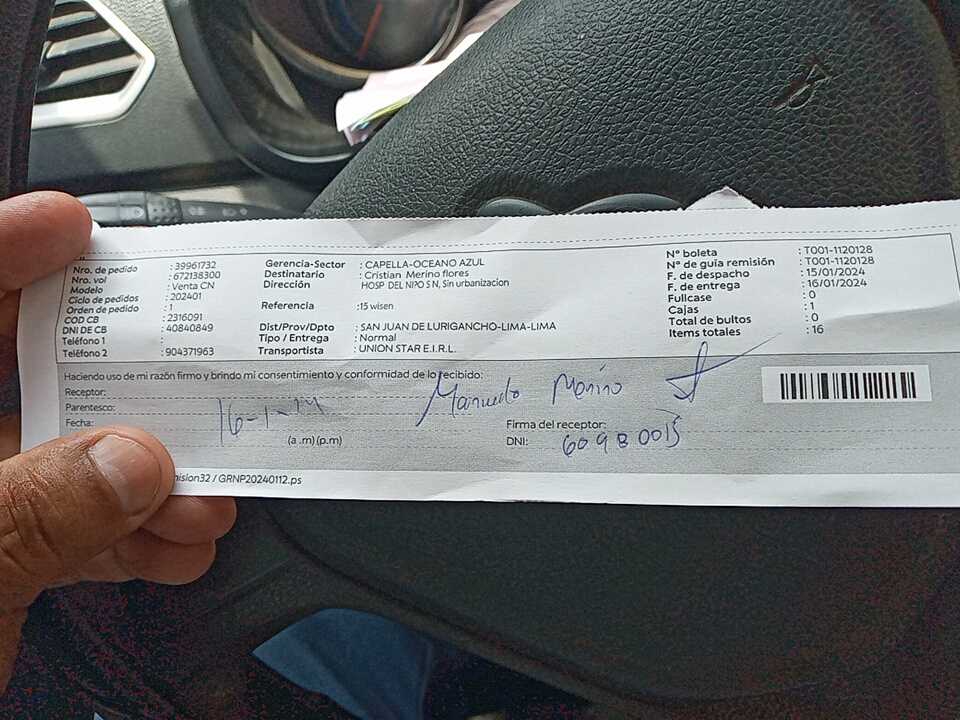 Nro. de pedido : 39961732
Nro. vol : 672138300
Modelo : Venta CN
Ciclo de pedidos : 202401
Orden de pedido : 1
COD CB : 2316091
DNI DE CB : 40840849
Teléfono 1 :
Teléfono 2 : 904371963
Gerencia-Sector : CAPELLA-OCEANO AZUL
Destinatario : Cristian Merino flores
Dirección HOSP DEL NIÑO S N, Sin urbanizacion
Referencia :15 wisen
Dist/Prov/Dpto : SAN JUAN DE LURIGANCHO-LIMA-LIMA
Tipo / Entrega : Normal
Transportista : UNION STAR E.I.R.L.
N° boleta : T001-1120128
N° de guía remisión : T001-1120128
F. de despacho : 15/01/2024
F. de entrega : 16/01/2024
Fullcase : 0
Cajas : 1
Total de bultos : 0
Items totales : 16
Haciendo uso de mi razón firmo y brindo mi consentimiento y conformidad de lo recibido:
Receptor:
Parentesco:
Fecha: 16-1-
(a .m) (p.m)
Merino
Firma del receptor:
DNI: 60980015
ision32 / GRNP20240112.ps